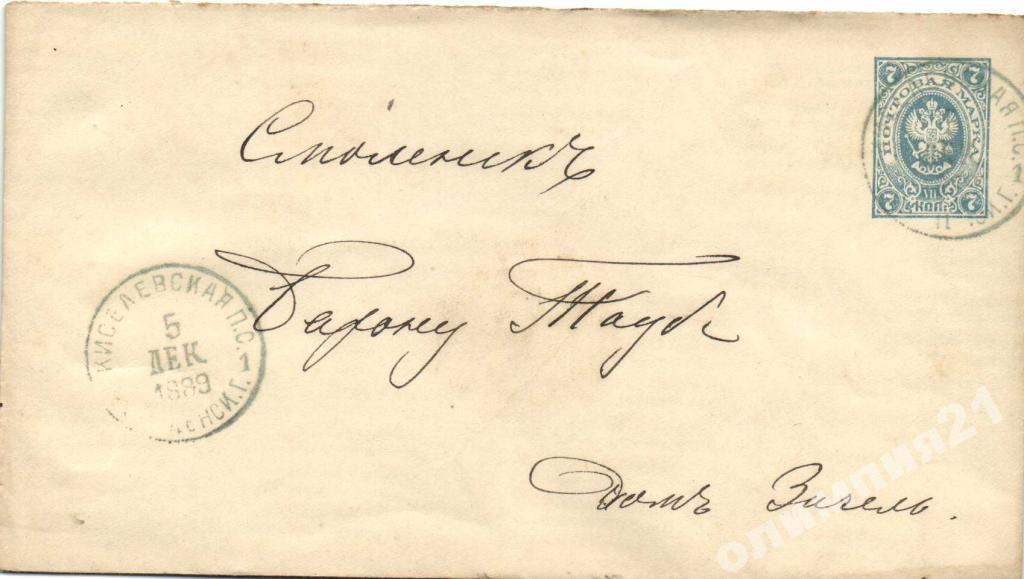 7 7
ПОЧТОВАЯ МАРКА
VII
КОП.
7 7
АЯ П.С. 1
Смоленскъ
Барону Таубе
КИСЕЛЕВСКАЯ П.С. 1
5
ДЕК
1889
ЕНСК.Г.
Домъ Зигель.
олимпия21